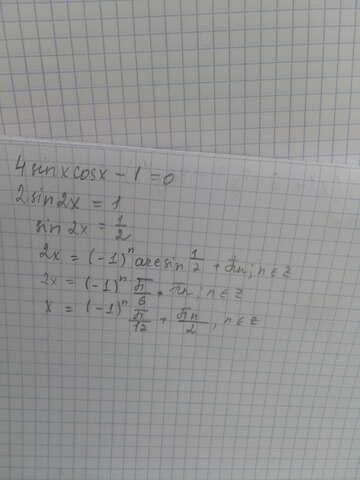 4 sin x cos x - 1 = 0
2 sin 2x = 1
sin 2x = 1/2
2x = (-1)^n arcsin 1/2 + πn; n ∈ Z
2x = (-1)^n π/6 + πn; n ∈ Z
x = (-1)^n π/12 + πn/2, n ∈ Z